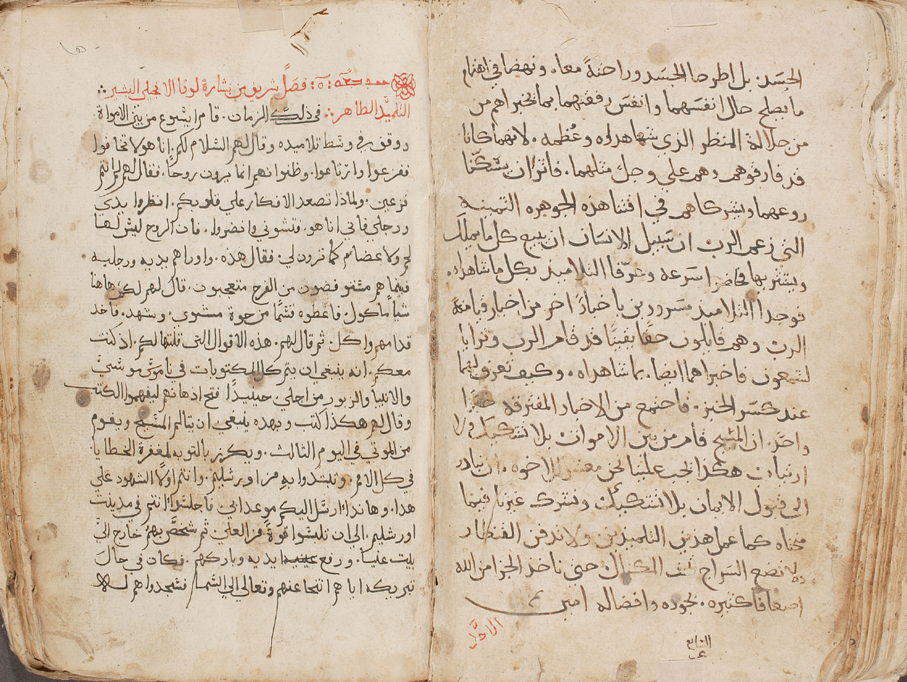 الحسد: بل اطرحا الحسد وراحنة معا. ونهضا في اهتمام
ما يصلح حال انفسهما وانفس رفقتهما بما تخبراهم من
من جلالة المنظر الذي شاهداه وعظمه. لانهما كانا
قد فارقوهم وهم علي وجل مثلهما. فاثرا ان يسكنا
روعهما ويشركاهم في اقتنا هذه الجوهره الثمينه
التي زعم الرب ان سبيل الانسان ان يبيع كل ما يملك
ويشتريها فحاضرا سرعه وعرفا التلاميذ بكل ما شاهداه.
فوجدا التلاميذ مسرورين باخبار اخر من اخبار قيامة
الرب وهم قايلون حقا يقينا قد قام الرب وترايا
لشمعون فاخبراهم ايضا بما شاهداه. وكيف تعرف لهما
عند كسر الخبز. فاجتمع من الاخبار المفترقه خبرا
واحد. ان المسيح قام من بين الاموات بلا تشكك ولا
ارتياب هكذا يجب علينا نحن معشر الاخوه. ان نبادر
الي قبول الايمان بلا تشكك ونشرك غيرنا فيما
منحناه كما عمل هذين التلميذين ولا ندفن القنطار
ولا نضع السراج تحت المكيال حتي ناخذ الجزا من الله
اضعافا كثيره. بجوده وافضاله امين
فصل شريف من بشارة لوقا الانجلي البشير
التلميذ الطاهر: في ذلك الزمان. قام ايشوع من بين الاموات
ووقف في وسط تلاميذه وقال لهم السلام لكم. انا هو لا تخافوا
ففزعوا وارتاعوا. وظنوا انهم انما يرون روحا. فقال لهم لم انتم
فزعين. ولماذا تصعد الافكار علي قلوبكم. انظروا يدي
ورجلي فاني انا هو. فتشوني وانضروا. فان الروح ليس لها
لحم ولا عضام كما ترون لي. فقال هذه. واوراهم يديه ورجليه
فيما هم غير مومنون من الفرح متعجبون. قال لهم لكم هاهنا
شيا ماكول. فاعطوه قسما من حوة مشوي. وشهد. فاخذ
قدامهم واكل. ثم قال لهم. هذه الاقوال التي قلتها لكم. اذ كنت
معكم. انه ينبغي ان يتم كل المكتوبات في ناموس موشي
والانبيا والزبور من اجلي حينيذا. فتح اذهانهم ليفهموا الكتب
وقال لهم هكذا كتب وبهذه ينبغي ان يتالم المسيح ويقوم
من الموتي في اليوم الثالث. ويكرز بالتوبه لمغفرة الخطايا
في كل الامم. وتبتدوا به من اورشليم. وانتم اولا الشهود علي
هذا. وهانذا ارسل اليكم موعد ابي. فاجلسوا انتم في مدينت
اورشليم. الي ان تلبسوا قوة من العلي ثم شخص بهم خارج الي
بيت عنيا. ورفع يديه وباركهم. فكان في حال
تبريكه اياهم انتحا عنهم وتعالي الي السما. فسجدوا هم له